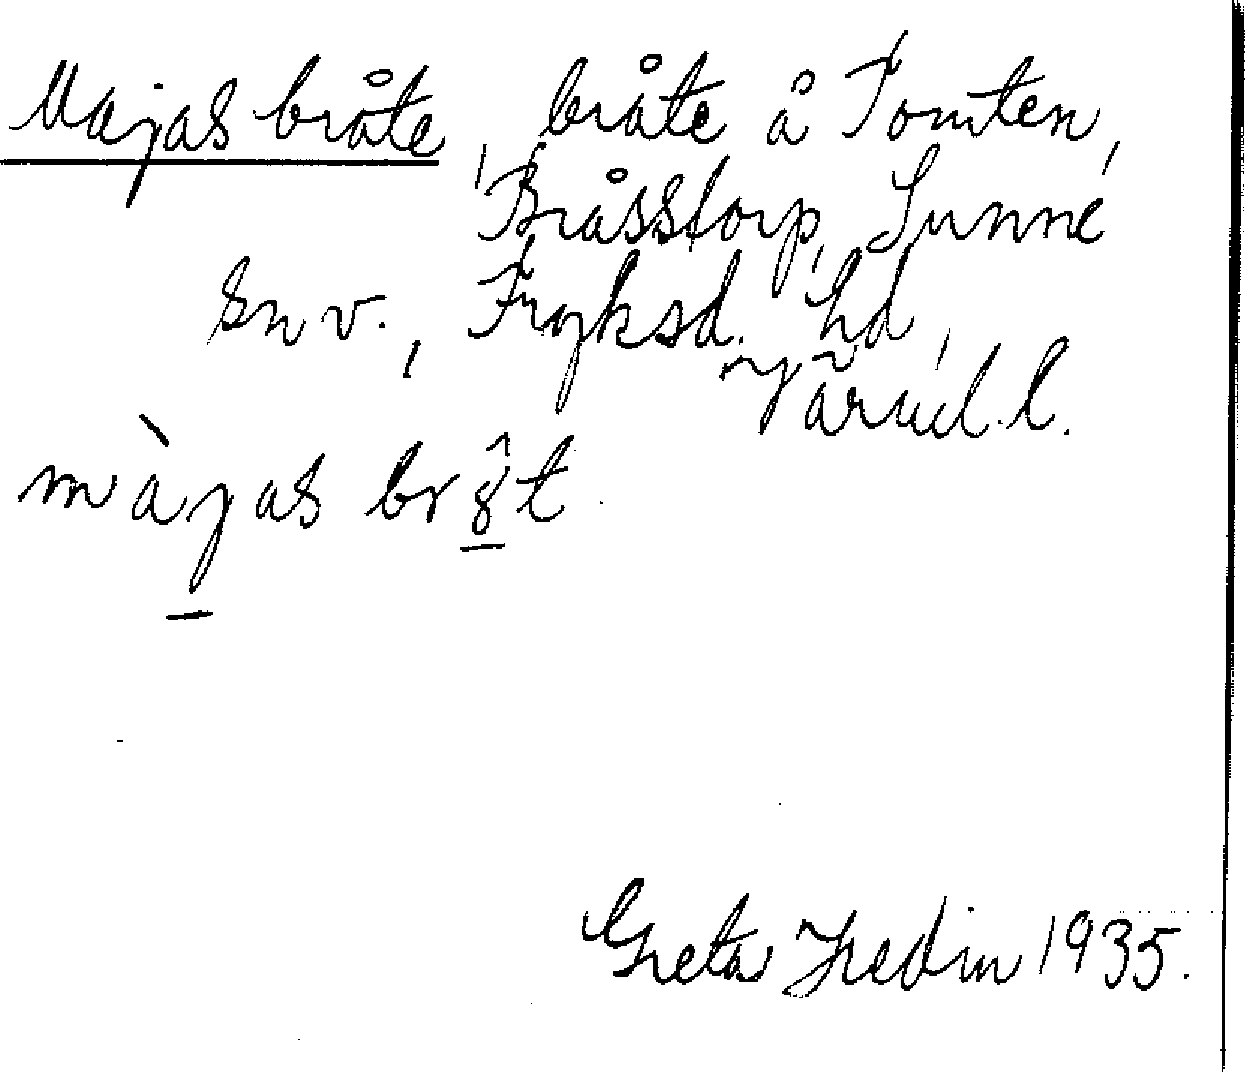 Majas bråte, bråte å Tomten,
Bråsstorp, Sunne
sn v., Fryksd. hd,
Värml. l.
màjas br8̂t
Greta Hedin 1935.